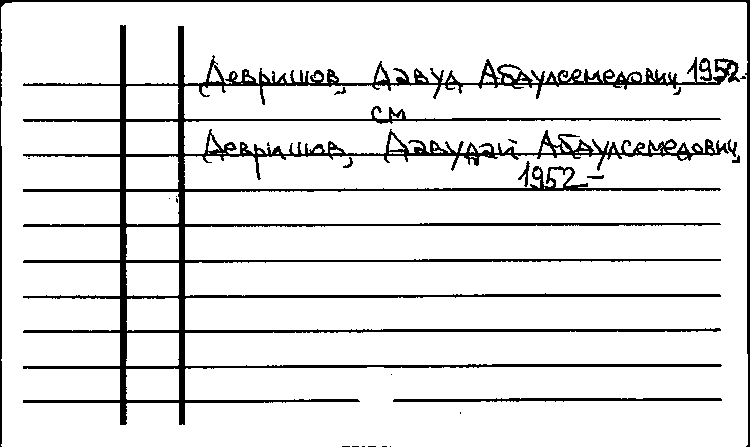 Девришов, Давуд Абдулсемедович, 1952-
см
Девришов, Давудай Абдулсемедович,
1952-